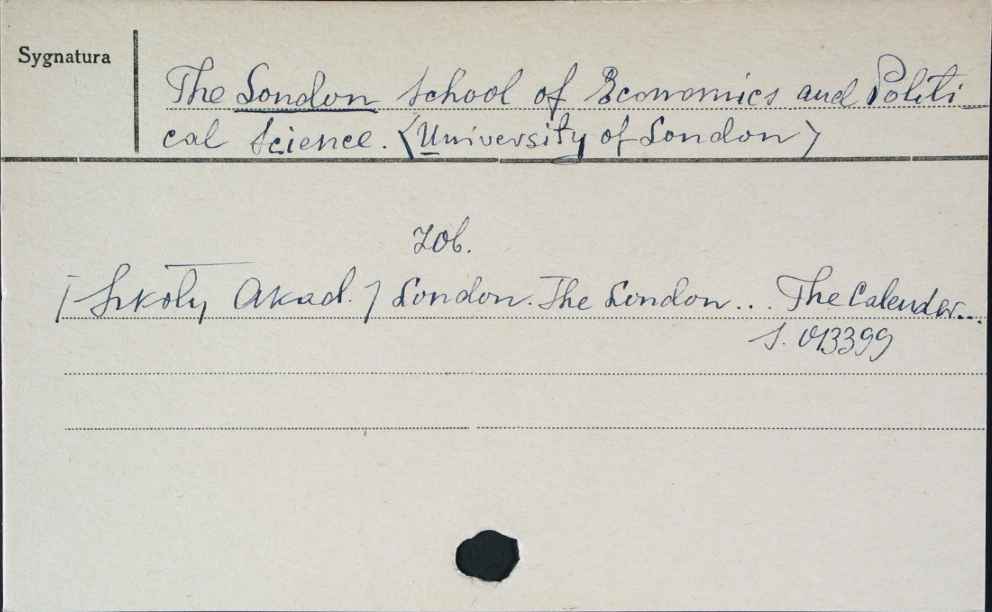 Sygnatura
The London School of Economics and Politi
cal Science. (University of London)
Zob.
[Szkoły Akad.] London. The London... The Calendar...
S. 013399